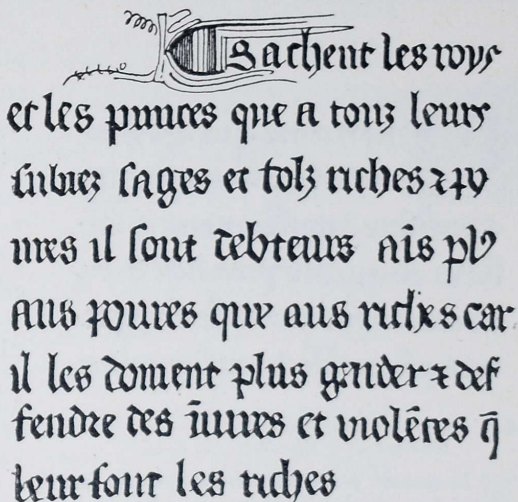 E sachent les roys
et les princes que a touz leurs
subiez sages et folz riches ⁊ po
ures il sont debteurs aīs plꝰ
aus poures que aus riches car
il les doiuent plus garder ⁊ def
fendre des īiures et violēces q̄
leur font les riches